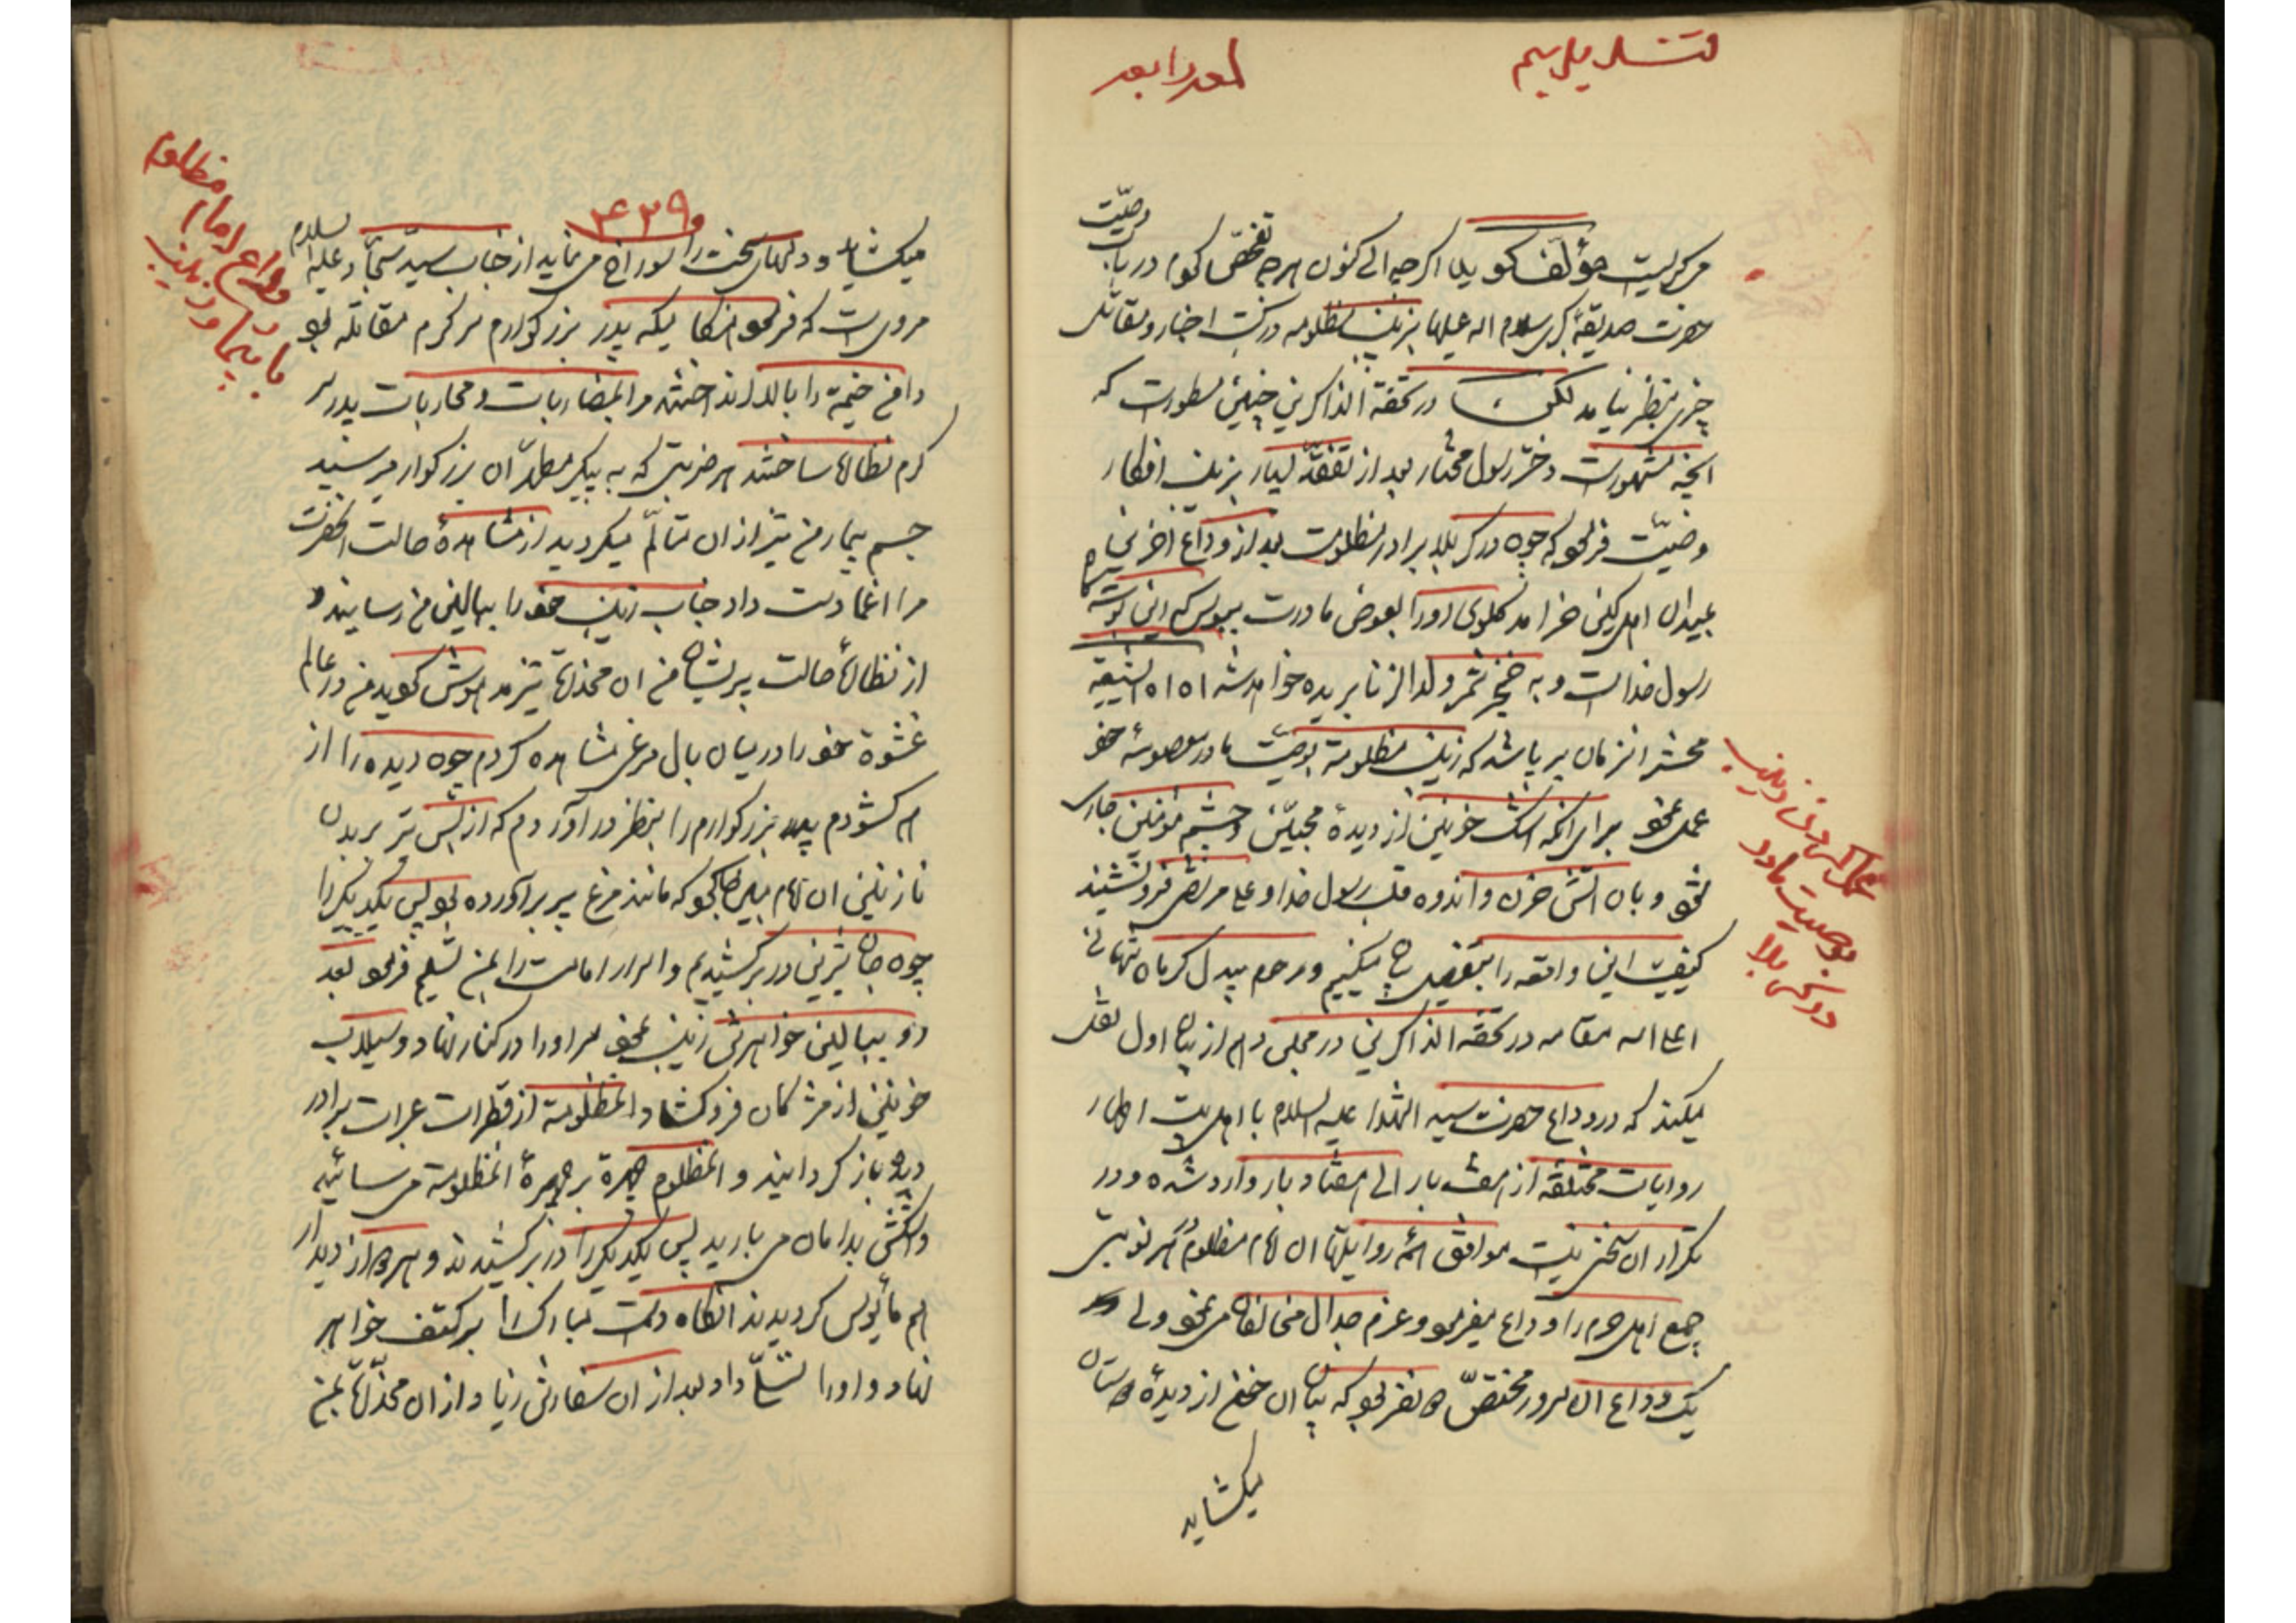 می‌گریست مؤلف گوید اگر چه الی کنون هر چه تفحص کردم در باب وصیت
حضرت صدیقه کبری سلام الله علیها بزینب مظلومه در کتب اخبار و مقاتل
چیزی بنظر نیامد لکن در تحفة الذاکرین چنین مسطورست که
آنچه مشهورست دختر رسول مختار بعد از تفقد بسیار بزینب افکار
وصیت فرمود که چون در کربلا برادر مظلومت بعد از وداع آخرین
بمیدان اهل کین خرامد گلوی او را بعوض مادرت ببوس که این بوسه گاه
رسول خداست و به خنجر شمر ولد الزنا بریده خواهد شد آه آه الشیعه
محشر آنزمان برپا شد که زینب مظلومه بوصیت مادر معصومه خود
عمل نمود برای آنکه اشک خونین از دیده محبین و چشم مؤمنین جاری
شود و بآن آتش حزن و اندوه قلب رسول خدا و علی مرتضی فرو نشیند
کیفیت این واقعه را بتفصیل بیان میکنیم و مرحوم بیدل کرمانشاهانی
اعلی الله مقامه در تحفة الذاکرین در مجلس دهم از بیان اول نقل
میکند که در وداع حضرت سید الشهدا علیه السلام با اهل بیت اطهار
روایات مختلفه از هفت بار الی هفتاد بار وارد شده و در
تکرار آن سخن نیست موافق همه روایتها آن امام مظلوم در هر نوبتی
جمع اهل حرم را وداع میفرمود و عزم جدال مخالفان می‌نمود ولی
یک وداع آن سرور مختص دو نفر بود که بیان آن خون از دیده دوستان
میگشاید
عمل کردن زینب
بوصیت مادر
در کربلا
۴۳۹
میگشاید و دلهای سخت را سوراخ می نماید از جناب سید سجاد علیه السلام
مرویست که فرمود هنگامیکه پدر بزرگوارم سرگرم مقاتله بود
دامن خیمه را بالا انداختند مرا بمضاربات و محاربات پدر
گرم نظاره ساختند هر ضربتی که به پیکر مطهر آن بزرگوار میرسید
جسم بیمار من نیز از آن متألم میگردید از مشاهده حالت آنحضرت
مرا اغما دست داد جناب زینب خود را ببالین من رسانید و
از نظاره حالت پریشان من آن مخدره نیز مدهوش گردید من در عالم
غشوة خود را در میان بال مرغی مشاهده کردم چون دیده را از
هم گشودم پدر بزرگوارم را بنظر در آوردم که از بس تیر بر بدن
نازنین آن امام مبین بود که مانند مرغ پر برآورده بود پس یکدیگر را
چون جان شیرین در بر کشیدیم و اسرار امامت را بمن تسلیم فرمود بعد
رو ببالین خواهرش زینب نمود سر او را در کنار نهاد و سیلاب
خونین از مژگان فرو گشاد آنمظلومة از قطرات عبرات برادر
دیده باز گردانید و آنمظلوم چهرة بر چهرة آنمظلومة می سائید
و اشکش بدامان می بارید پس یکدیگر را در بر کشیدند و هر دو از دیدار
هم مأیوس گردیدند آنگاه دست مبارک را بر کتف خواهر
نهاد و او را تسلی داد بعد از آن سفارش زیاد از آن مخدره بمن
وداع امام مظلوم
با بیمار و زینب